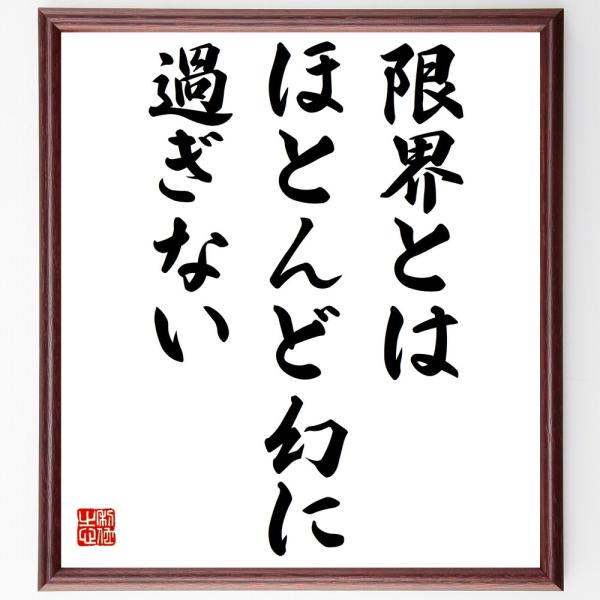 限界とは
ほとんど幻に
過ぎない